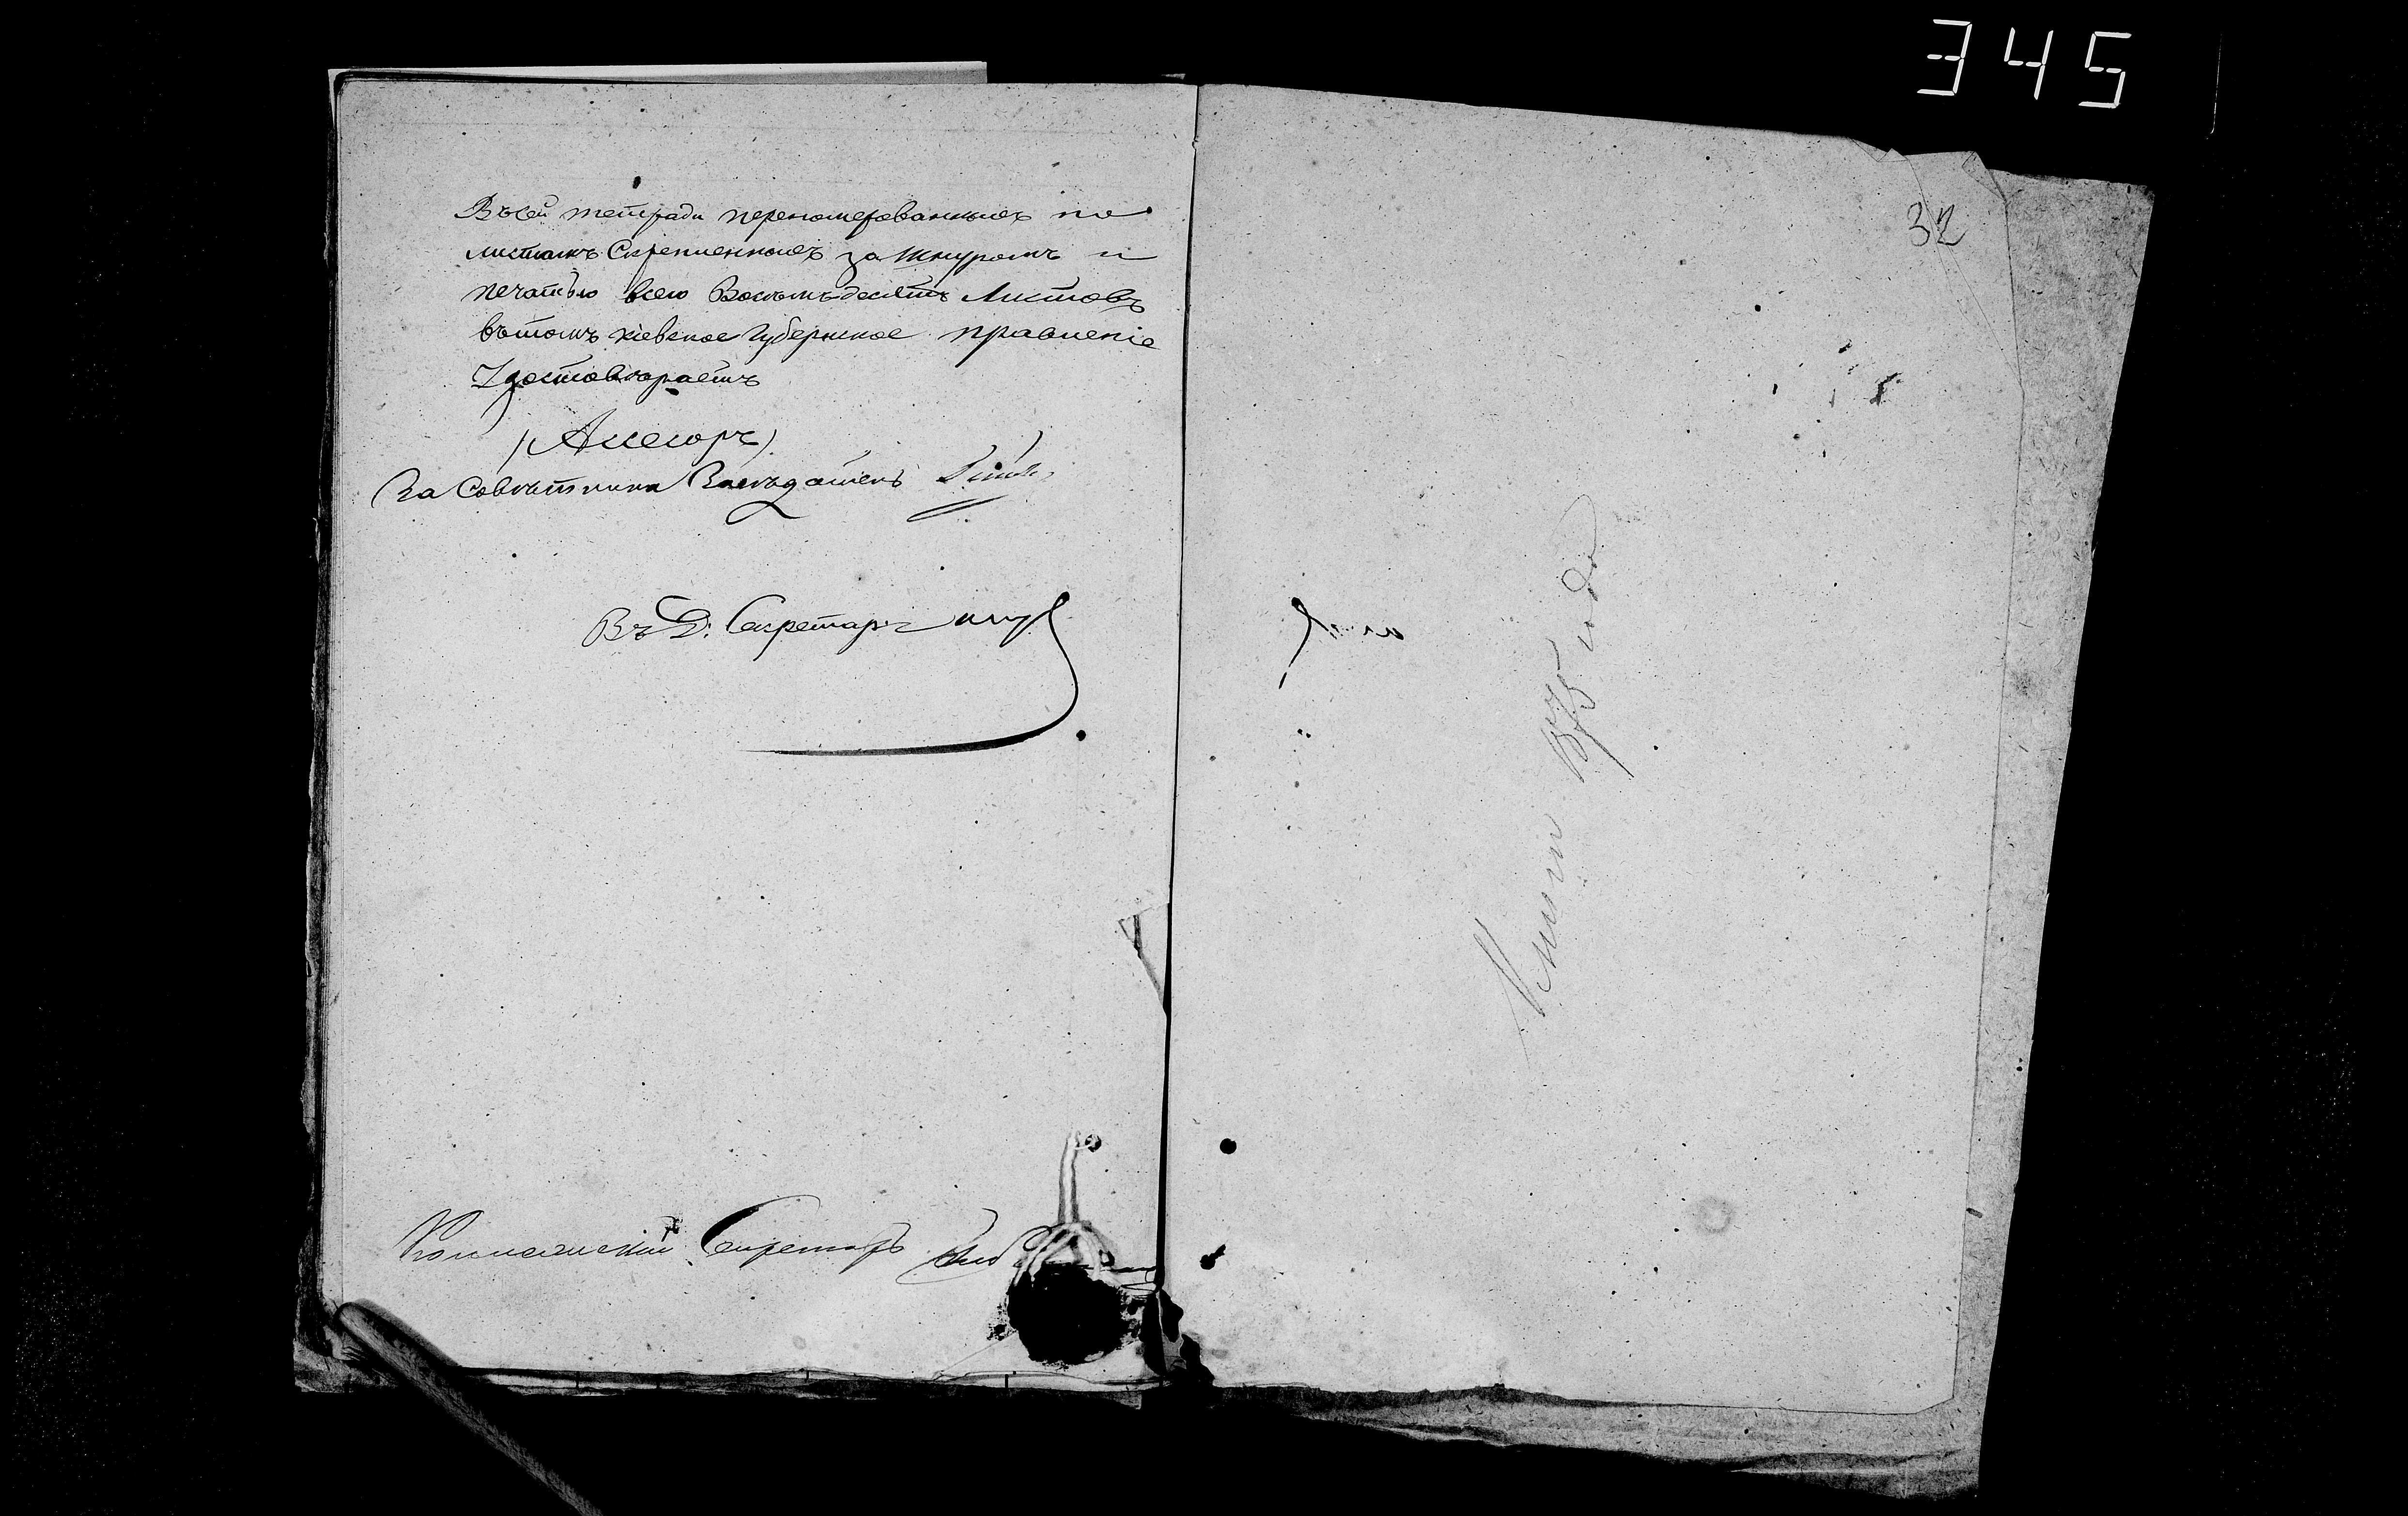 345
Въсей тетради перепомерованныхъ по
листамъ Скрепленныхъ за шнуромъ и
печатью всего Восемъдесятъ Листовъ
вътомъ Кіевское Губернское правленіе
Удостоверяетъ
(Асесоръ)
За Советника Заседатель
Въ Д: Секретаръ
Коллежский Секретарь
32
Книги 1875 года